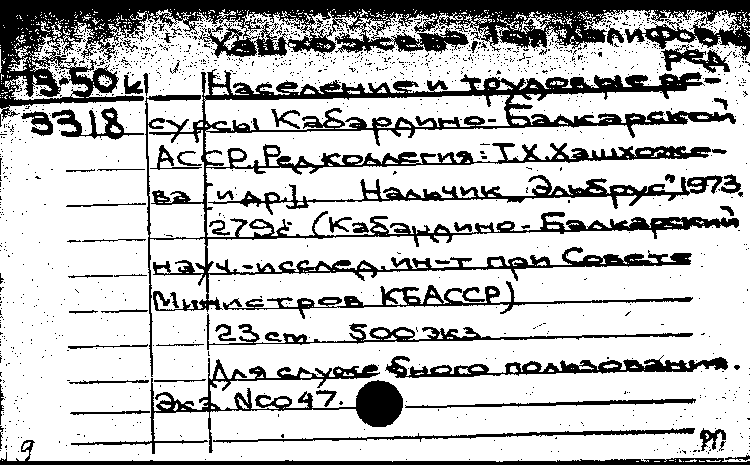 Хашхожева, Тая Халифовна
ред.
73-50к Население и трудовые ре-
3318 сурсы Кабардино-Балкарской
АССР. [Ред. коллегия: Т.Х.Хашхоже-
ва [и др.]. Нальчик, "Эльбрус", 1973.
279с. (Кабардино-Балкарский
науч.-исслед. ин-т при Совете
Министров КБАССР)
23см. 500 экз.
Для служебного пользования.
Экз. №0047.
9
РП